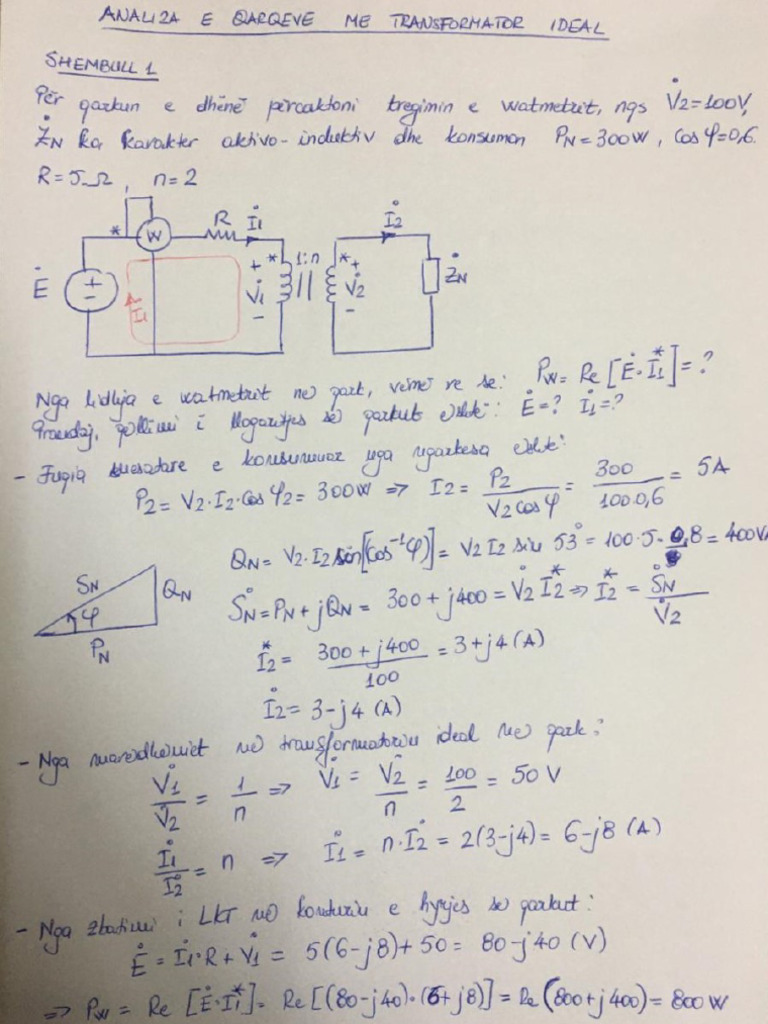 ANALIZA E QARQEVE ME TRANSFORMATOR IDEAL
SHEMBULL 1
Për qarkun e dhënë përcaktoni tregimin e watmetrit, nqs V̇2=100V,
ŻN ka karakter aktivo-induktiv dhe konsumon PN=300W, Cosφ=0,6.
R=5Ω, n=2
* W R İ1 İ2
Ė + − İ1 + V̇1 − * 1:n * + V̇2 − ŻN
Nga lidhja e watmetrit në qark, vemë re se: PW= Re[Ė·İ1*]=?
Prandaj, qëllimi i llogaritjes së qarkut është: Ė=? İ1=?
- Fuqia mesatare e konsumuar nga ngarkesa është:
P2= V2·I2·cosφ2= 300W => I2= P2/(V2 cosφ) = 300/(100·0,6) = 5A
QN= V2·I2 sin[cos⁻¹φ]= V2 I2 sin 53° = 100·5·0,8 = 400VA
SN QN φ PN
ṠN=PN+jQN= 300+j400= V̇2 İ2* => İ2* = ṠN/V̇2
İ2* = (300+j400)/100 = 3+j4 (A)
İ2= 3-j4 (A)
- Nga marrëdhëniet në transformatorin ideal në qark:
V̇1/V̇2 = 1/n => V̇1 = V̇2/n = 100/2 = 50 V
İ1/İ2 = n => İ1 = n·İ2 = 2(3-j4)= 6-j8 (A)
- Nga zbatimi i LKT në konturin e hyrjes së qarkut:
Ė = İ1·R+V̇1 = 5(6-j8)+50= 80-j40 (V)
=> PW = Re[Ė·İ1*]= Re[(80-j40)·(6+j8)]= Re(800+j400)= 800W